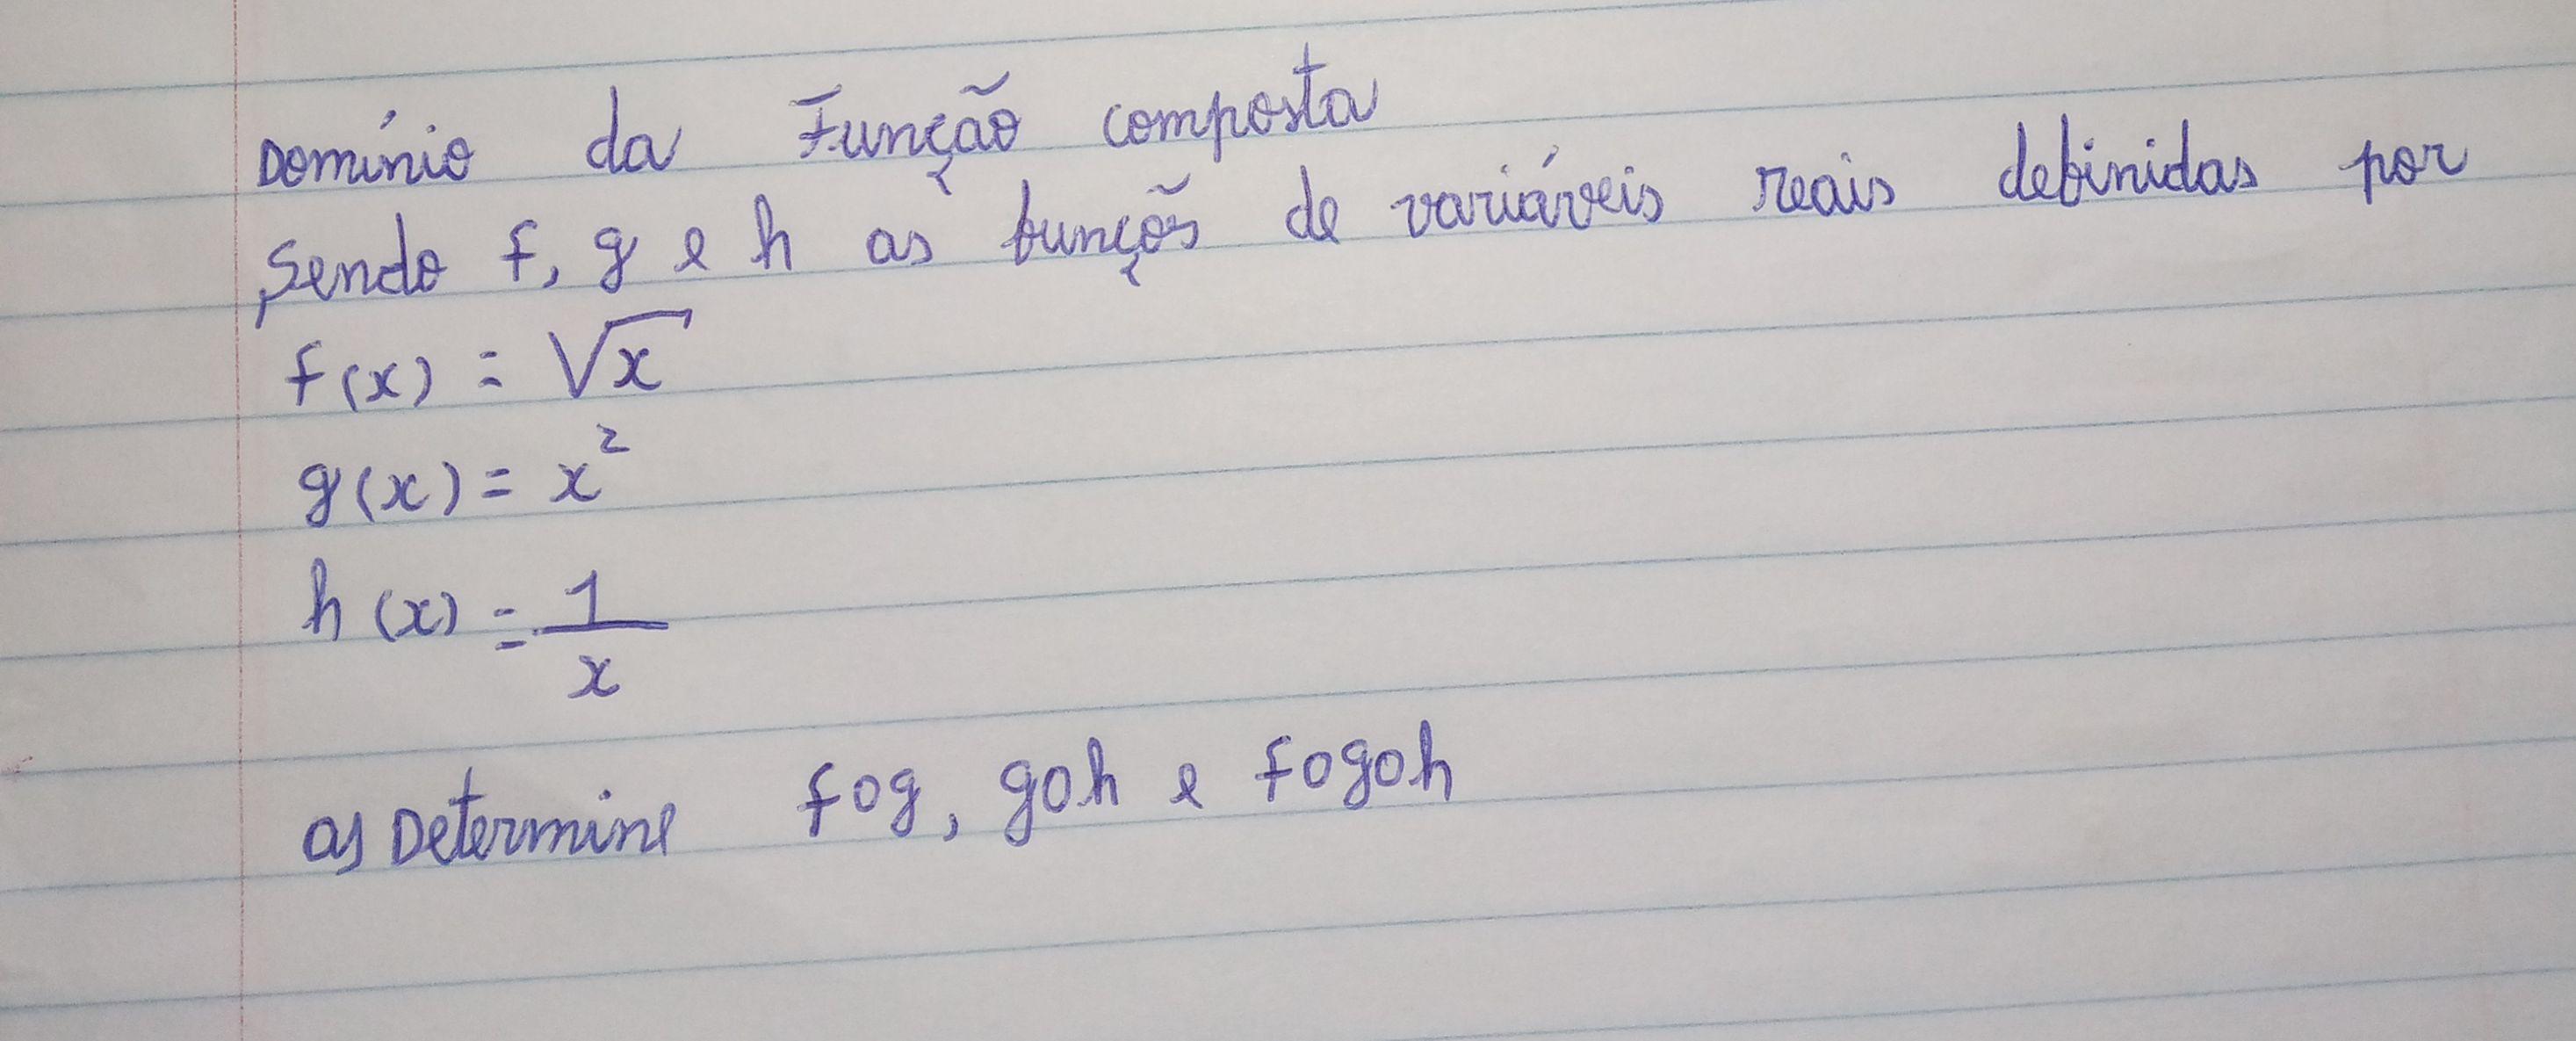 Domínio da Função composta
Sendo f, g e h as funçõs de variáveis reais definidas por
f(x) = √x
g(x) = x²
h(x) = 1/x
a) Determine fog, goh e fogoh